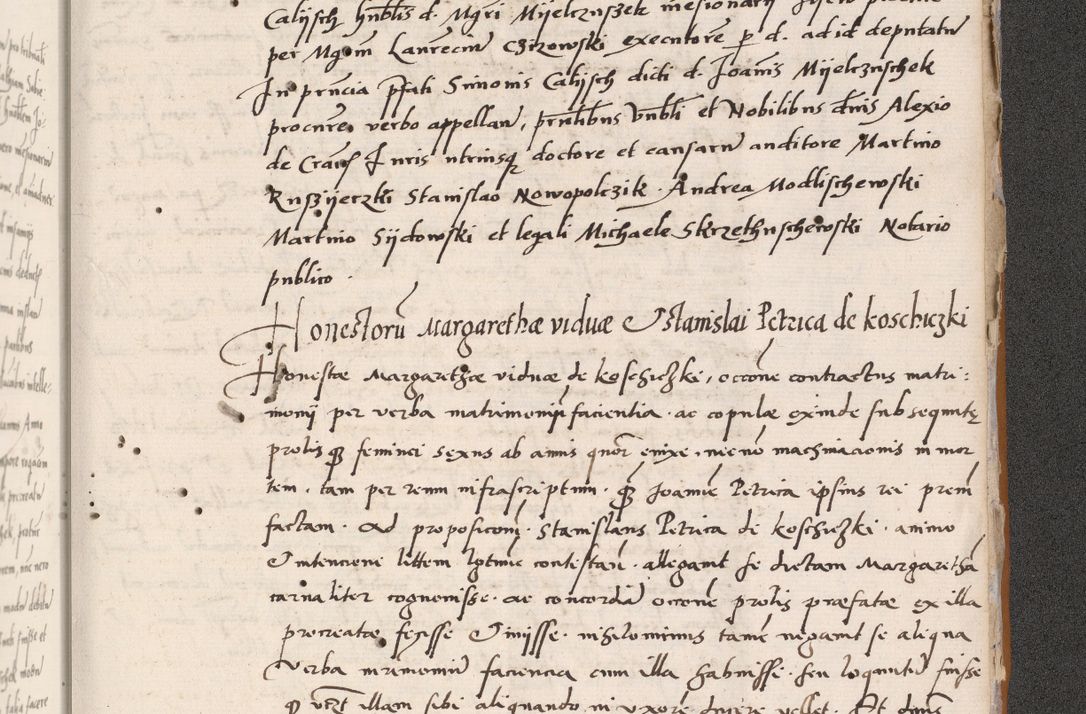 Calijsch hnblis d. Mgri Mijelczusszek mesionarij
per Mgom Laurecium Czirzowski executore p d. ad id deputatu
In prncia pfati Simonis Calijsch dicti d. Joanis Mijelcznschek
procure verbo appellan, prntibus Vnbli et Nobilibus dnis Alexio
de Crau Juris utriusq doctore et causaru auditore Martino
Ruszijeczki Stanislao Nowopolczik . Andrea Modlischewski
Martino Sijdowski et legali Michaele Skrzethuschewski Notario
publico .
Honestoru Margarethæ viduæ & Stanislai Petrica de koschiczki
Honestæ Margarethæ viduæ de koschiczki, occone contractus matri:
monij per verba matrimonij facientia . ac copulæ exinde subsequutę
prolis qz feminei sexus ab annis quor enixe . necno machinacionis in mor
tem . tam per reum infrascriptum . qz Joane Petrica ipsius rei prem
factam . Ad proposicom . Stanislaus Petrica de koschiczki . animo
& intencione littem lgtime contestan . allegavit se dictam Margaretha
carnaliter cognovisse . ac concordia occone prolis præfatæ ex illa
procreatæ fecisse & inijsse . nihilominus tame negavit se aliqua
verba mrimoniu faciencia cum illa habuisse . seu loquutu fuisse
q vt illam sibi aliquando in vxore ducere vellet . Et dnus